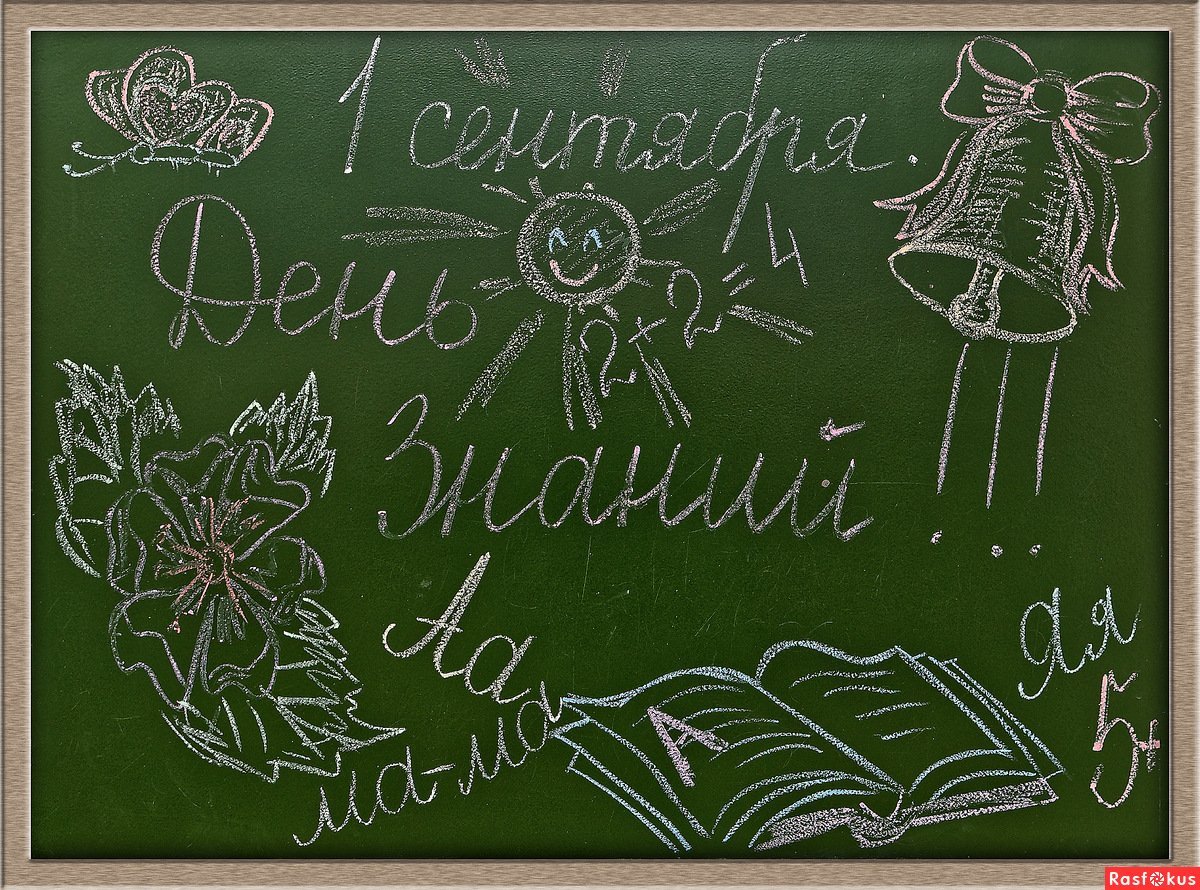 1 сентября.
День
2+2=4
Знаний!!!
Аа
ма-ма
А
Яя
5+
Rasfokus